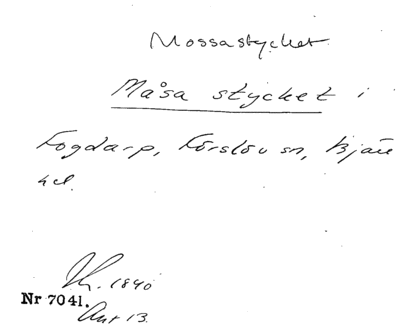 Mossastycket
Måsa stycket i
Fogdarp, Förslöv sn, Bjäre
hd.
1840
Nr 7041.
Akt 13.